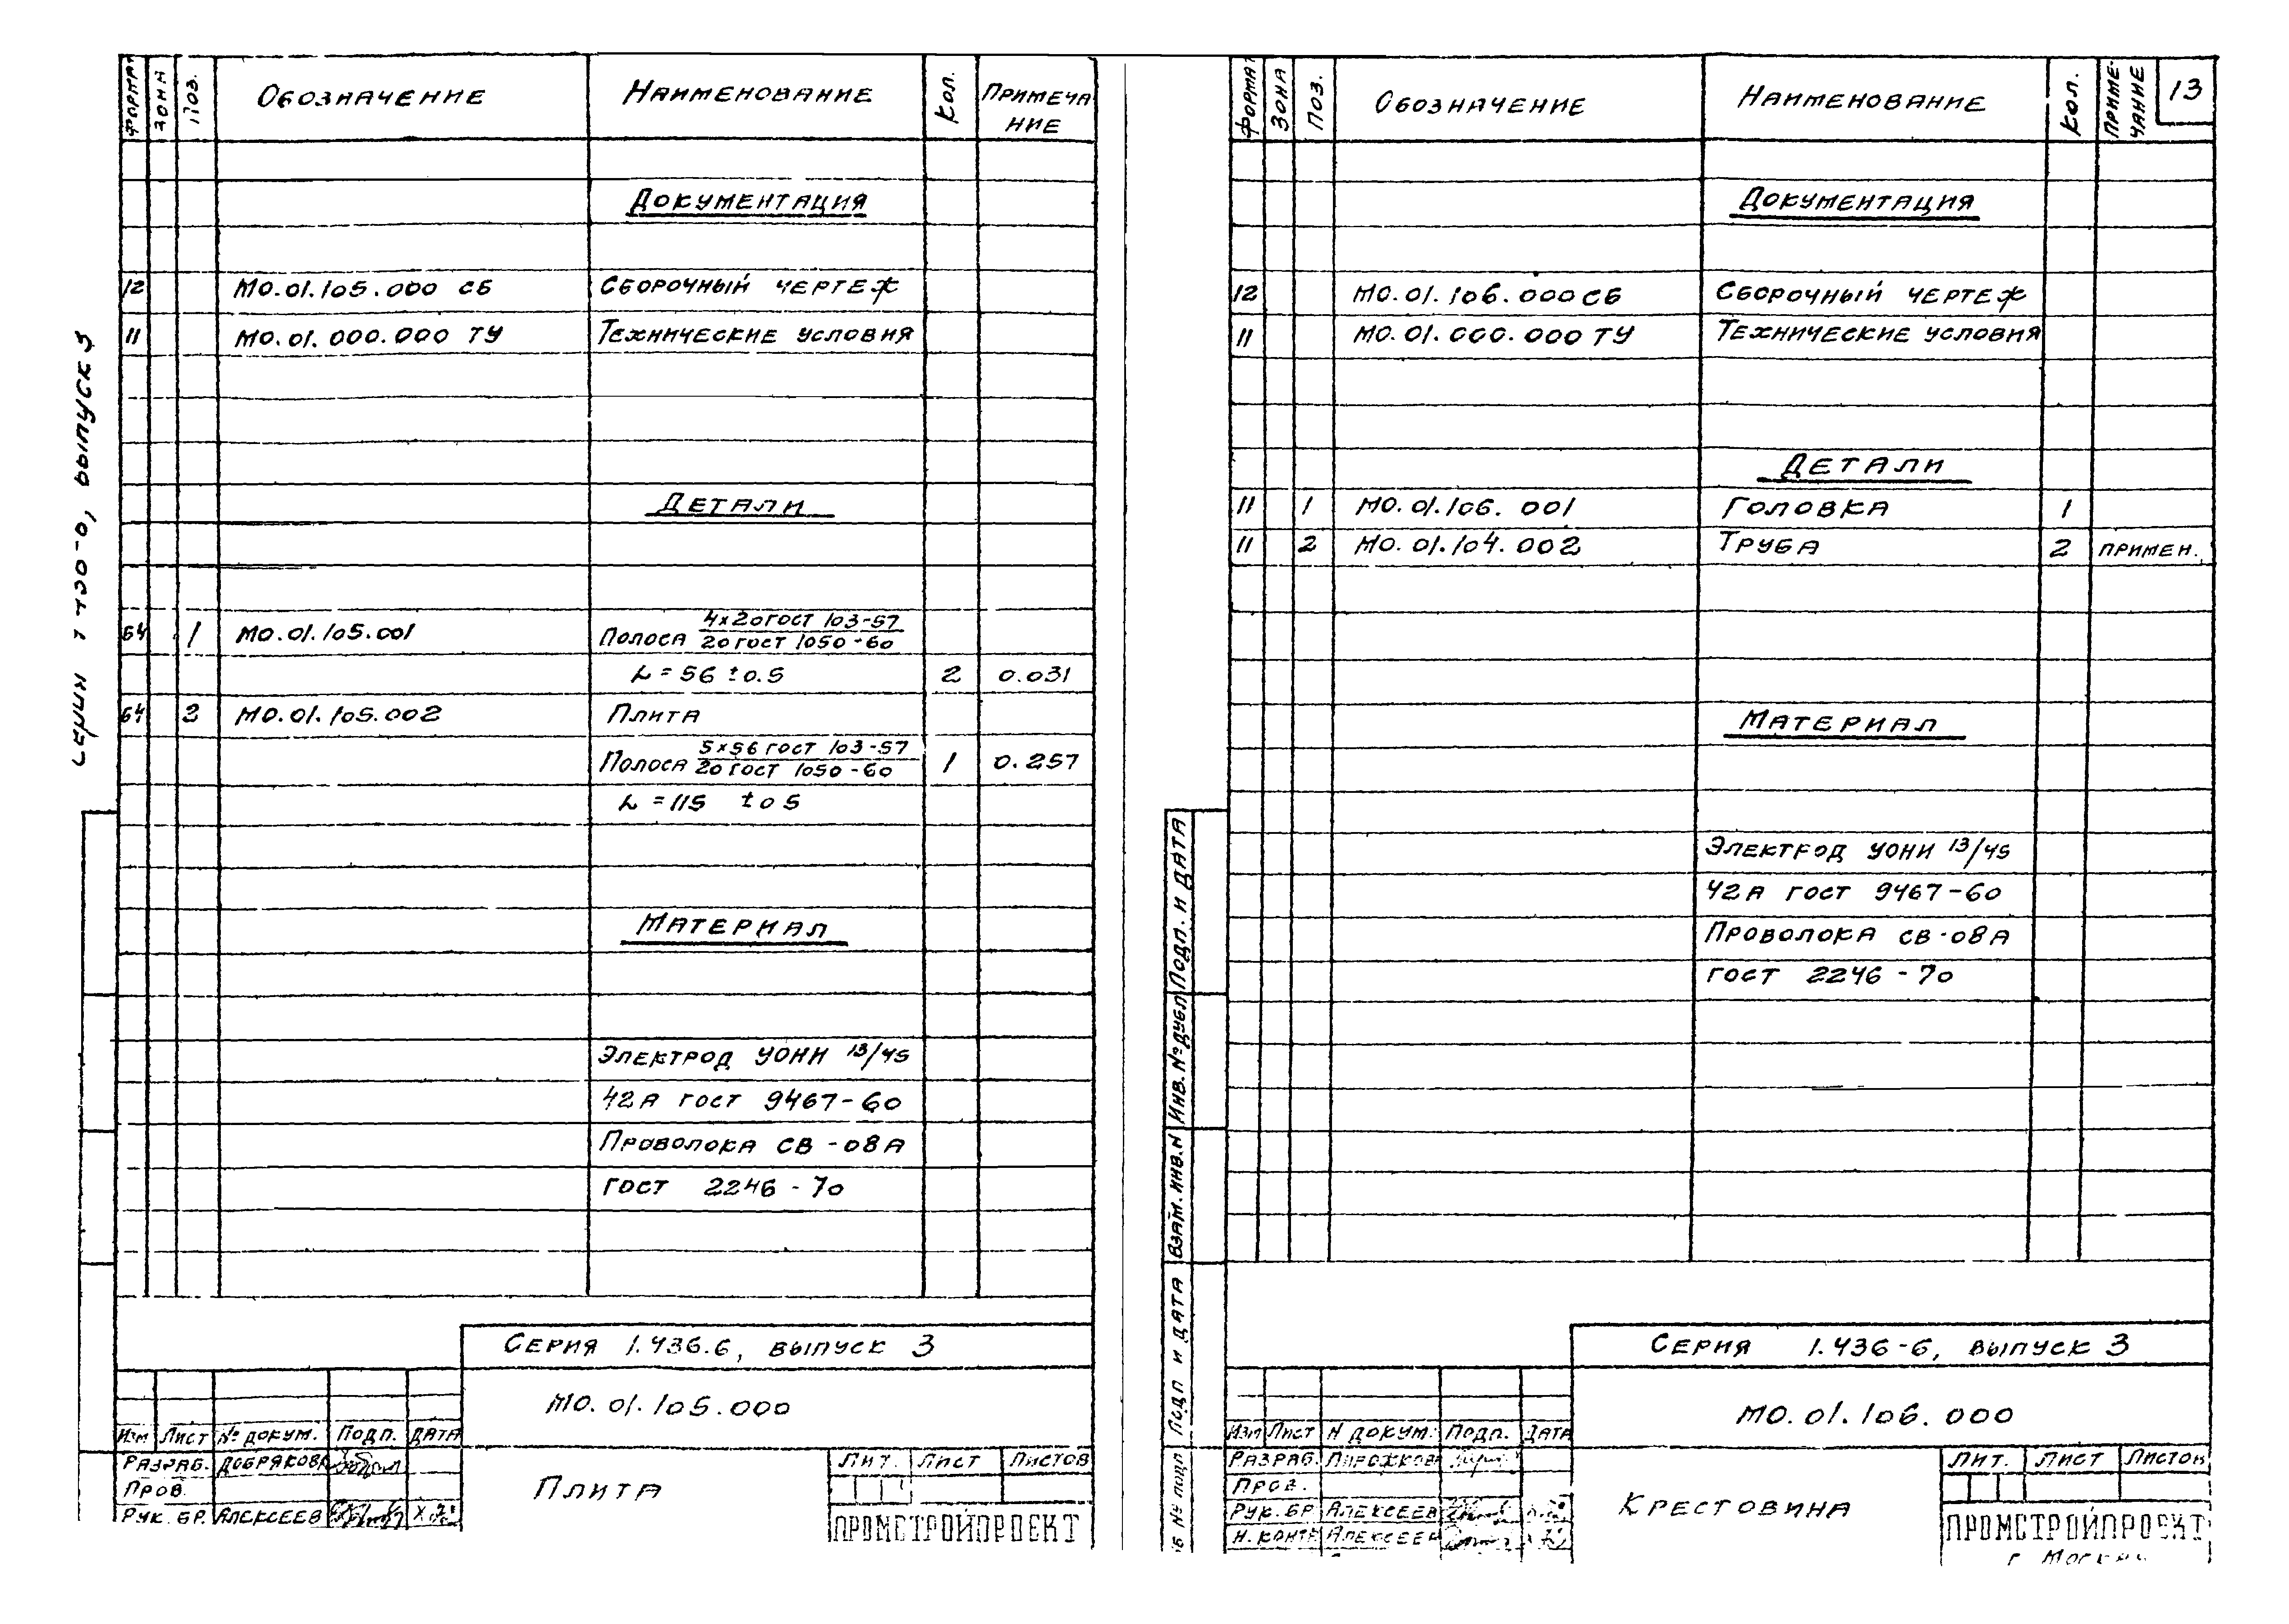 ФОРМАТ ЗОНА ПОЗ. ОБОЗНАЧЕНИЕ НАИМЕНОВАНИЕ КОЛ. ПРИМЕЧАНИЕ
ДОКУМЕНТАЦИЯ
12 МО.01.105.000 СБ СБОРОЧНЫЙ ЧЕРТЕЖ
11 МО.01.000.000 ТУ ТЕХНИЧЕСКИЕ УСЛОВИЯ
ДЕТАЛИ
4х20 ГОСТ 103-57
64 1 МО.01.105.001 ПОЛОСА 20 ГОСТ 1050-60
L = 56 ±0.5 2 0.031
64 2 МО.01.105.002 ПЛИТА
5х56 ГОСТ 103-57
ПОЛОСА 20 ГОСТ 1050-60 1 0.257
L = 115 ±0 5
МАТЕРИАЛ
ЭЛЕКТРОД УОНИ 13/45
42А ГОСТ 9467-60
ПРОВОЛОКА СВ-08А
ГОСТ 2246-70
СЕРИЯ 1.436.6, ВЫПУСК 3
МО.01.105.000
ИЗМ ЛИСТ № ДОКУМ. ПОДП. ДАТА
РАЗРАБ. ДОБРЯКОВА
ПРОВ.
РУК. БР. АЛЕКСЕЕВ
ПЛИТА
ЛИТ. ЛИСТ ЛИСТОВ
ПРОМСТРОЙПРОЕКТ
ВЫПУСК 3
ФОРМАТ ЗОНА ПОЗ. ОБОЗНАЧЕНИЕ НАИМЕНОВАНИЕ КОЛ. ПРИМЕ-
ЧАНИЕ
13
ДОКУМЕНТАЦИЯ
12 МО.01.106.000СБ СБОРОЧНЫЙ ЧЕРТЕЖ
11 МО.01.000.000 ТУ ТЕХНИЧЕСКИЕ УСЛОВИЯ
ДЕТАЛИ
11 1 МО.01.106.001 ГОЛОВКА 1
11 2 МО.01.104.002 ТРУБА 2 ПРИМЕН.
МАТЕРИАЛ
ЭЛЕКТРОД УОНИ 13/45
42А ГОСТ 9467-60
ПРОВОЛОКА СВ-08А
ГОСТ 2246-70
ПОДП. И ДАТА
ИНВ. № ДУБЛ
ВЗАМ. ИНВ. N
ПОДП И ДАТА
№ ПОДЛ
СЕРИЯ 1.436-6, ВЫПУСК 3
МО.01.106.000
ИЗМ ЛИСТ N ДОКУМ. ПОДП. ДАТА
РАЗРАБ. ПИРОЖКОВА
ПРОВ.
РУК. БР АЛЕКСЕЕВ
Н. КОНТР АЛЕКСЕЕВ
КРЕСТОВИНА
ЛИТ. ЛИСТ ЛИСТОВ
ПРОМСТРОЙПРОЕКТ
Г МОСКВА